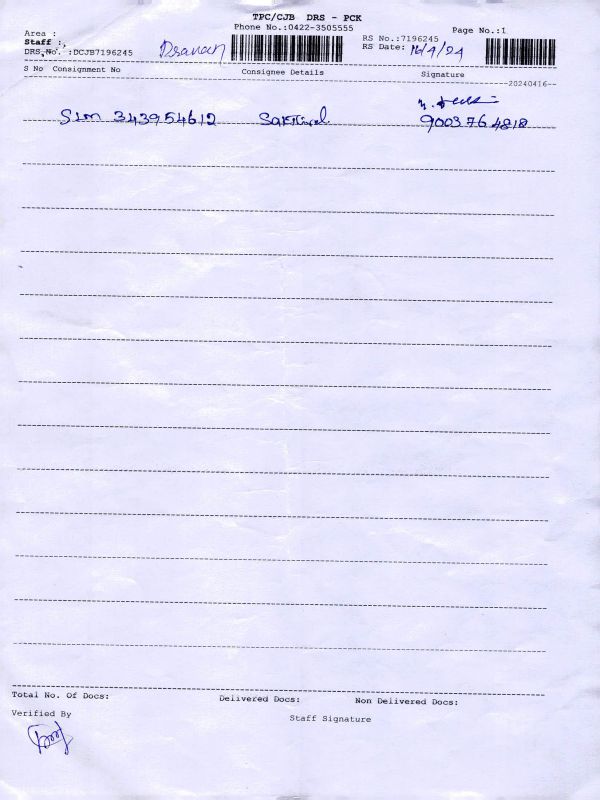 TPC/CJB DRS - PCK
Phone No.:0422-3505555
Page No.:1
Area :
Staff :,
DRS,No. :DCJB7196245
RS No.:7196245
RS Date: 16/4/24
S No Consignment No Consignee Details Signature
--20240416--
SLM 343954612
9003764818
Total No. Of Docs: Delivered Docs: Non Delivered Docs:
Verified By
Staff Signature